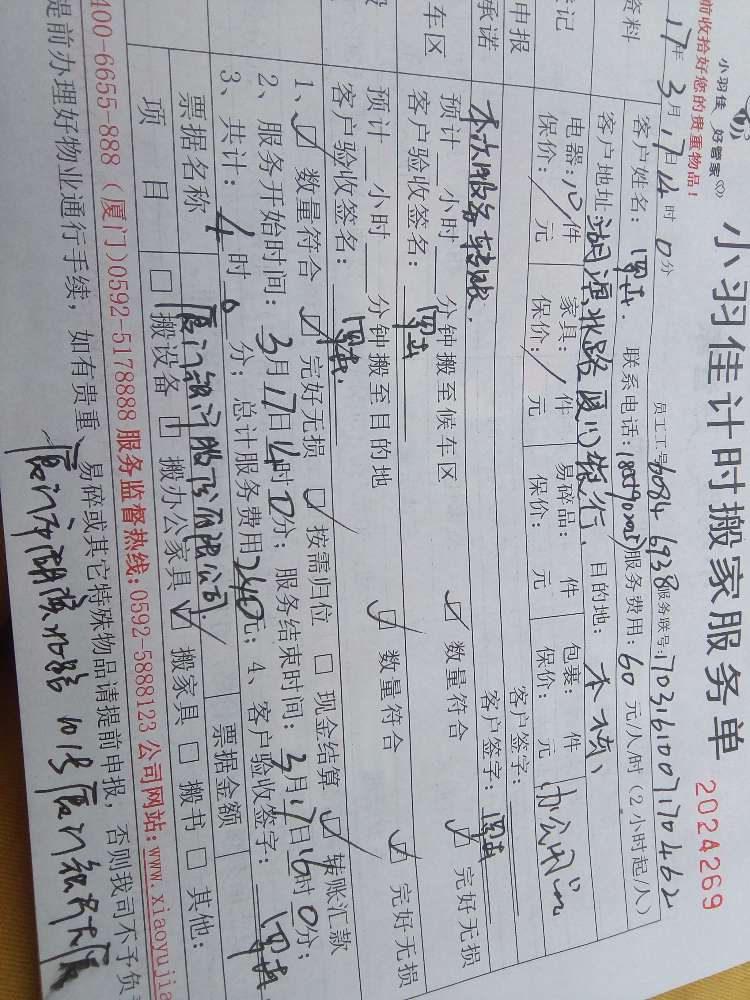 小羽佳 好管家
小羽佳计时搬家服务单
2024269
前收拾好您的贵重物品!
员工工号 6084 6938 服务联号: 1703161007170462
17年 3月 17日 14时 0分
资料
客户姓名: 联系电话: 服务费用: 60 元/小时(2小时起/人)
客户地址: 湖滨北路厦门银行, 目的地: 本栋
登记
电器: 件 家具: / 件 易碎品: 件 包裹: 件 办公用品
保价: / 元 保价: / 元 保价: 元 保价: 元
申报
客户签字:
承诺
本次服务转账.
客户签字:
车区
预计 小时 分钟搬至候车区 ☑ 数量符合 ☑ 完好无损
客户验收签名:
预计 小时 分钟搬至目的地 ☑ 数量符合 ☑ 完好无损
客户验收签名:
1、☑ 数量符合 ☑ 完好无损 ☑ 按需归位 □ 现金结算 ☑ 转账汇款
2、服务开始时间: 3月17日14时0分; 服务结束时间: 3月17日16时0分;
3、共计: 4时0分; 总计服务费用240元; 4、客户验收签字:
票据名称 厦门银行股份有限公司 票据金额
项目 □ 搬设备 □ 搬办公家具 ☑ 搬家具 □ 搬书 □ 其他:
400-6655-888 (厦门)0592-5178888 服务监督热线:0592-5888123 公司网站:www.xiaoyujia
提前办理好物业通行手续, 如有贵重、易碎或其它特殊物品请提前申报, 否则我司不予负
厦门市湖滨北路101号厦门银行大厦